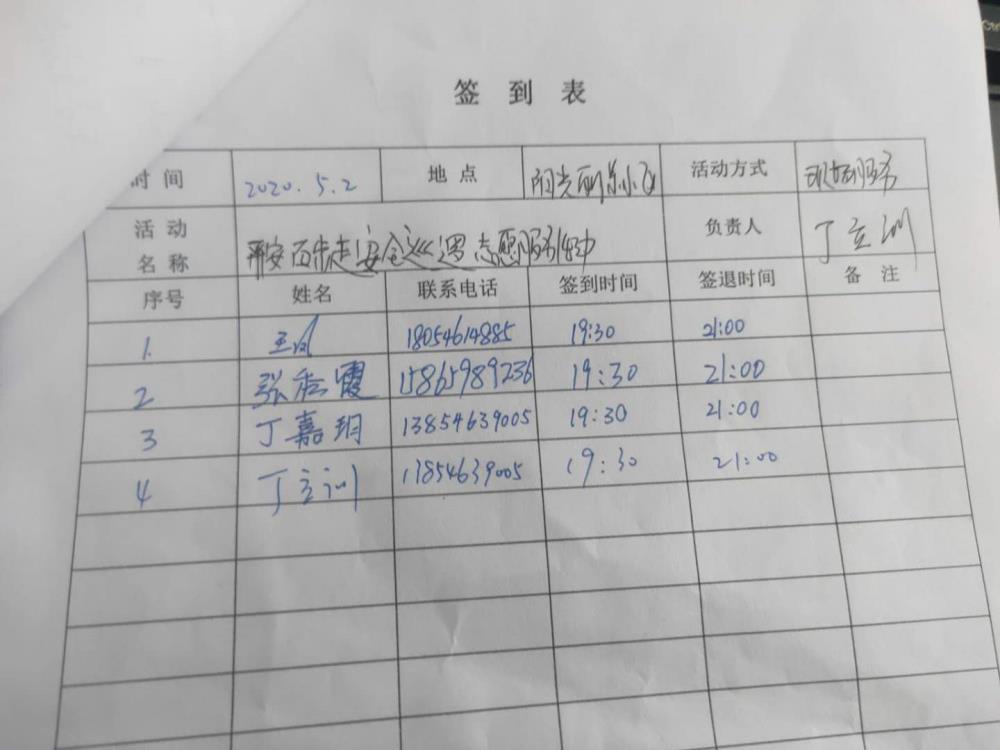 签到表
时间 2020.5.2 地点 阳光丽景小区 活动方式 现场服务
活动名称 平安百步走安全巡逻志愿服务活动 负责人 丁立训
序号 姓名 联系电话 签到时间 签退时间 备注
1. 王 18054614885 19:30 21:00
2 张 霞 15865989236 19:30 21:00
3 丁嘉玥 13854639005 19:30 21:00
4 丁立训 13854639005 19:30 21:00